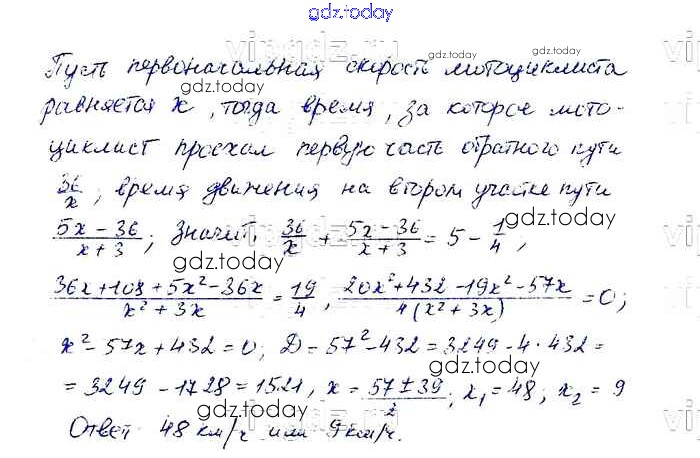 gdz.today
Пусть первоначальная скрость мотоциклиста
равняется x, тогда время, за которое мото-
циклист проехал первую часть обратного пути
36/x; время движения на втором участке пути
(5x - 36)/(x + 3); Значит, 36/x + (5x - 36)/(x + 3) = 5 - 1/4,
(36x + 108 + 5x² - 36x)/(x² + 3x) = 19/4, (20x² + 432 - 19x² - 57x)/(4(x² + 3x)) = 0;
x² - 57x + 432 = 0; D = 57² - 432 = 3249 - 4 · 432 =
= 3249 - 1728 = 1521, x = (57 ± 39)/2; x₁ = 48; x₂ = 9
Ответ 48 км/ч или 9 км/ч.